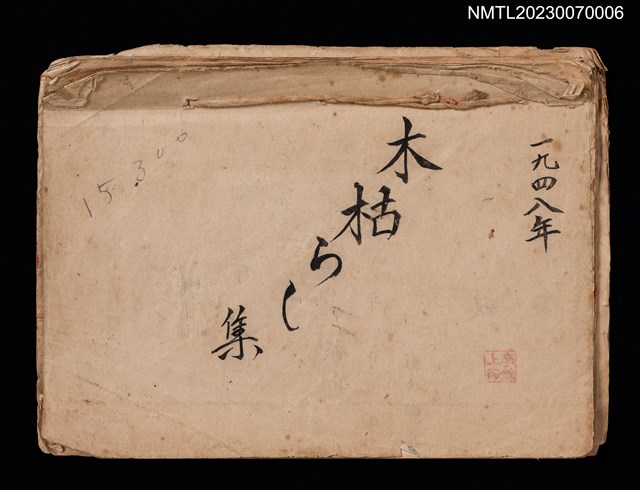 NMTL20230070006
一九四八年
木枯らし
集
15300